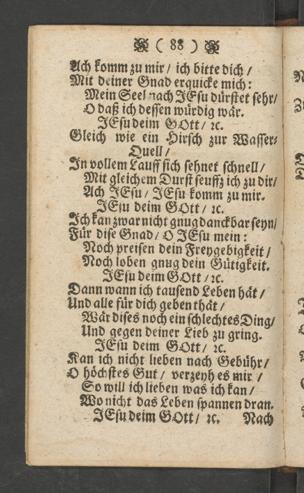 ( 88 )
Ach komm zu mir / ich bitte dich /
Mit deiner Gnad erquicke mich:
Mein Seel nach JEsu dürstet sehr /
O daß ich dessen würdig wär.
JEsu deim GOtt / ꝛc.
Gleich wie ein Hirsch zur Wasser-
Quell /
In vollem Lauff sich sehnet schnell /
Mit gleichem Durst seuffz ich zu dir /
Ach JEsu / JEsu komm zu mir.
JEsu deim GOtt / ꝛc.
Ich kan zwar nicht gnug danckbar seyn /
Für dise Gnad / O JEsu mein:
Noch preisen dein Freygebigkeit /
Noch loben gnug dein Gütigkeit.
JEsu deim GOtt / ꝛc.
Dann wann ich tausend Leben hät /
Und alle für dich geben thät /
Wär dises noch ein schlechtes Ding /
Und gegen deiner Lieb zu gring.
JEsu deim GOtt / ꝛc.
Kan ich nicht lieben nach Gebühr /
O höchstes Gut / verzeyh es mir /
So will ich lieben was ich kan /
Wo nicht das Leben spannen dran.
JEsu deim GOtt / ꝛc. Nach